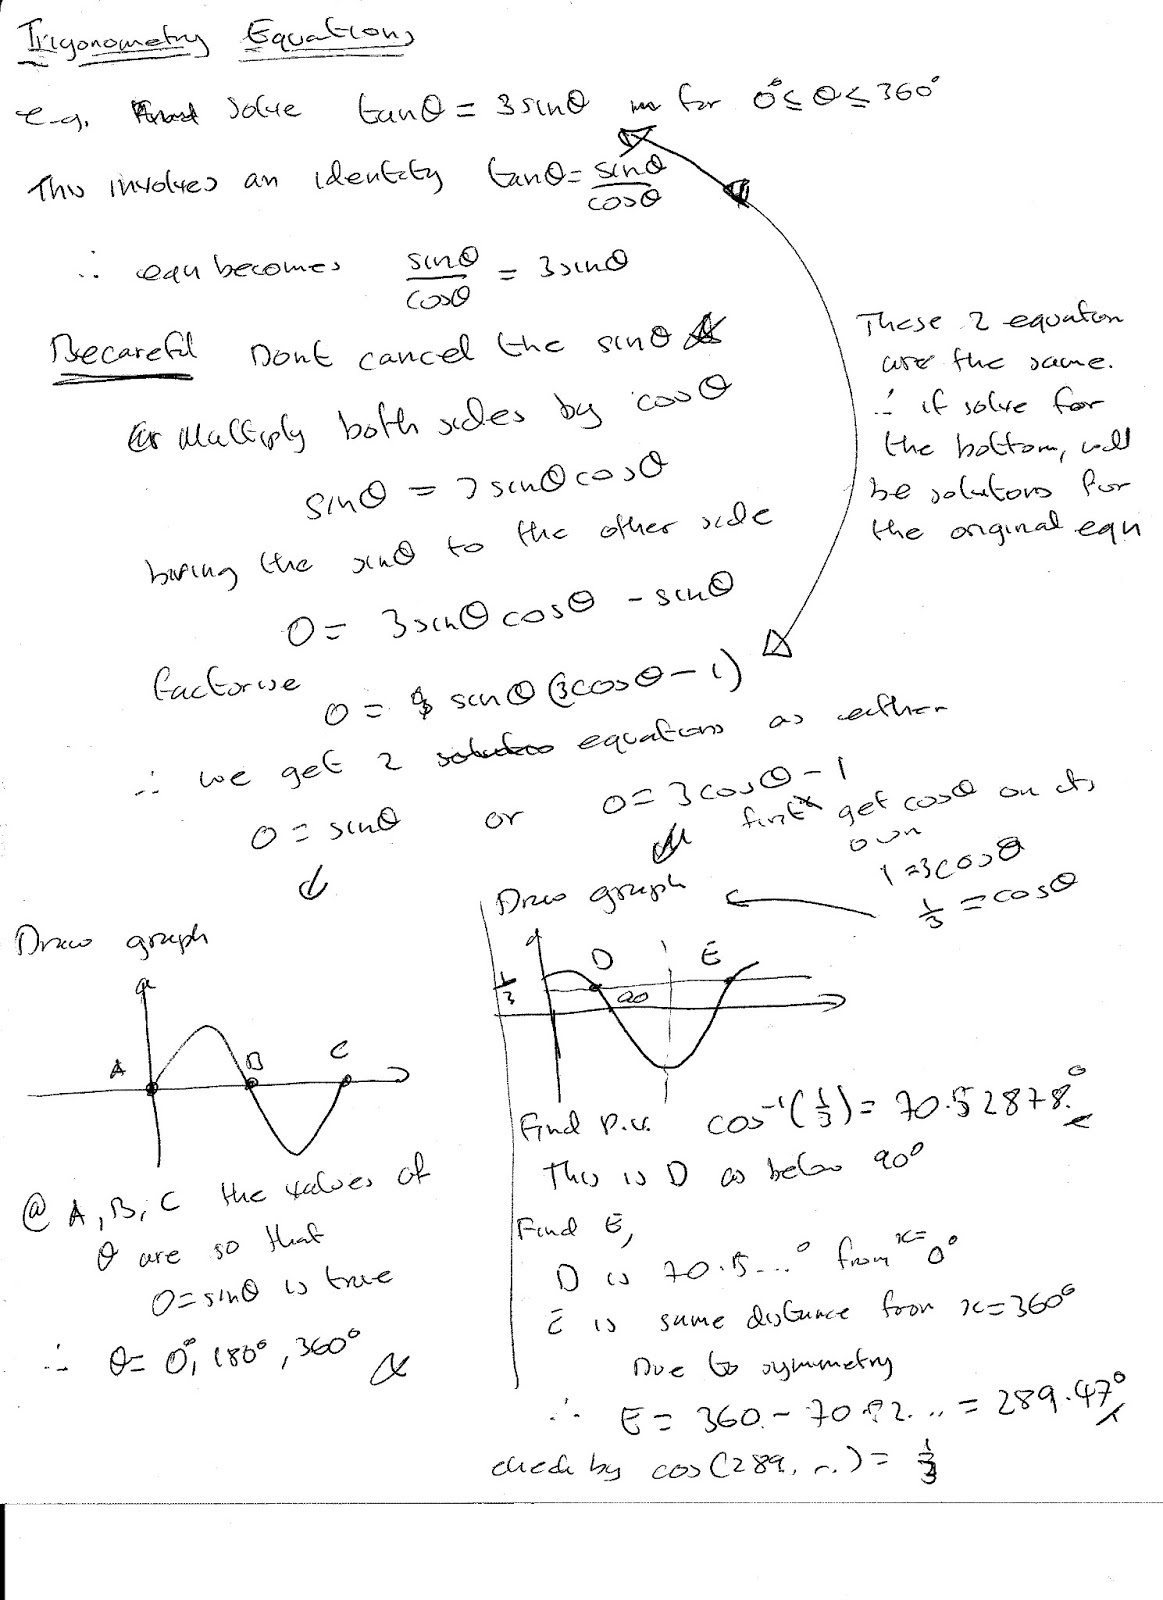 Trigonometry Equations
e.g. solve tanθ = 3sinθ for 0° ≤ θ ≤ 360°
This involves an identity tanθ = sinθ/cosθ
∴ equ becomes sinθ/cosθ = 3sinθ
Becareful Dont cancel the sinθ
Multiply both sides by cosθ
sinθ = 3sinθcosθ
bring the sinθ to the other side
0 = 3sinθcosθ - sinθ
factorise
0 = sinθ(3cosθ - 1)
These 2 equation
are the same.
∴ if solve for
the bottom, will
be solutions for
the original equ
∴ we get 2 equations as either
0 = sinθ or 0 = 3cosθ - 1
first get cosθ on its
own
1 = 3cosθ
1/3 = cosθ
Draw graph
A B C
@ A, B, C the values of
θ are so that
0 = sinθ is true
∴ θ = 0°, 180°, 360°
Draw graph
1/3 D 90 E
Find P.V. cos⁻¹(1/3) = 70.52878°
This is D as below 90°
Find E,
D is 70.5...° from x = 0°
E is same distance from x = 360°
Due to symmetry
∴ E = 360 - 70.52... = 289.47°
check by cos(289...) = 1/3